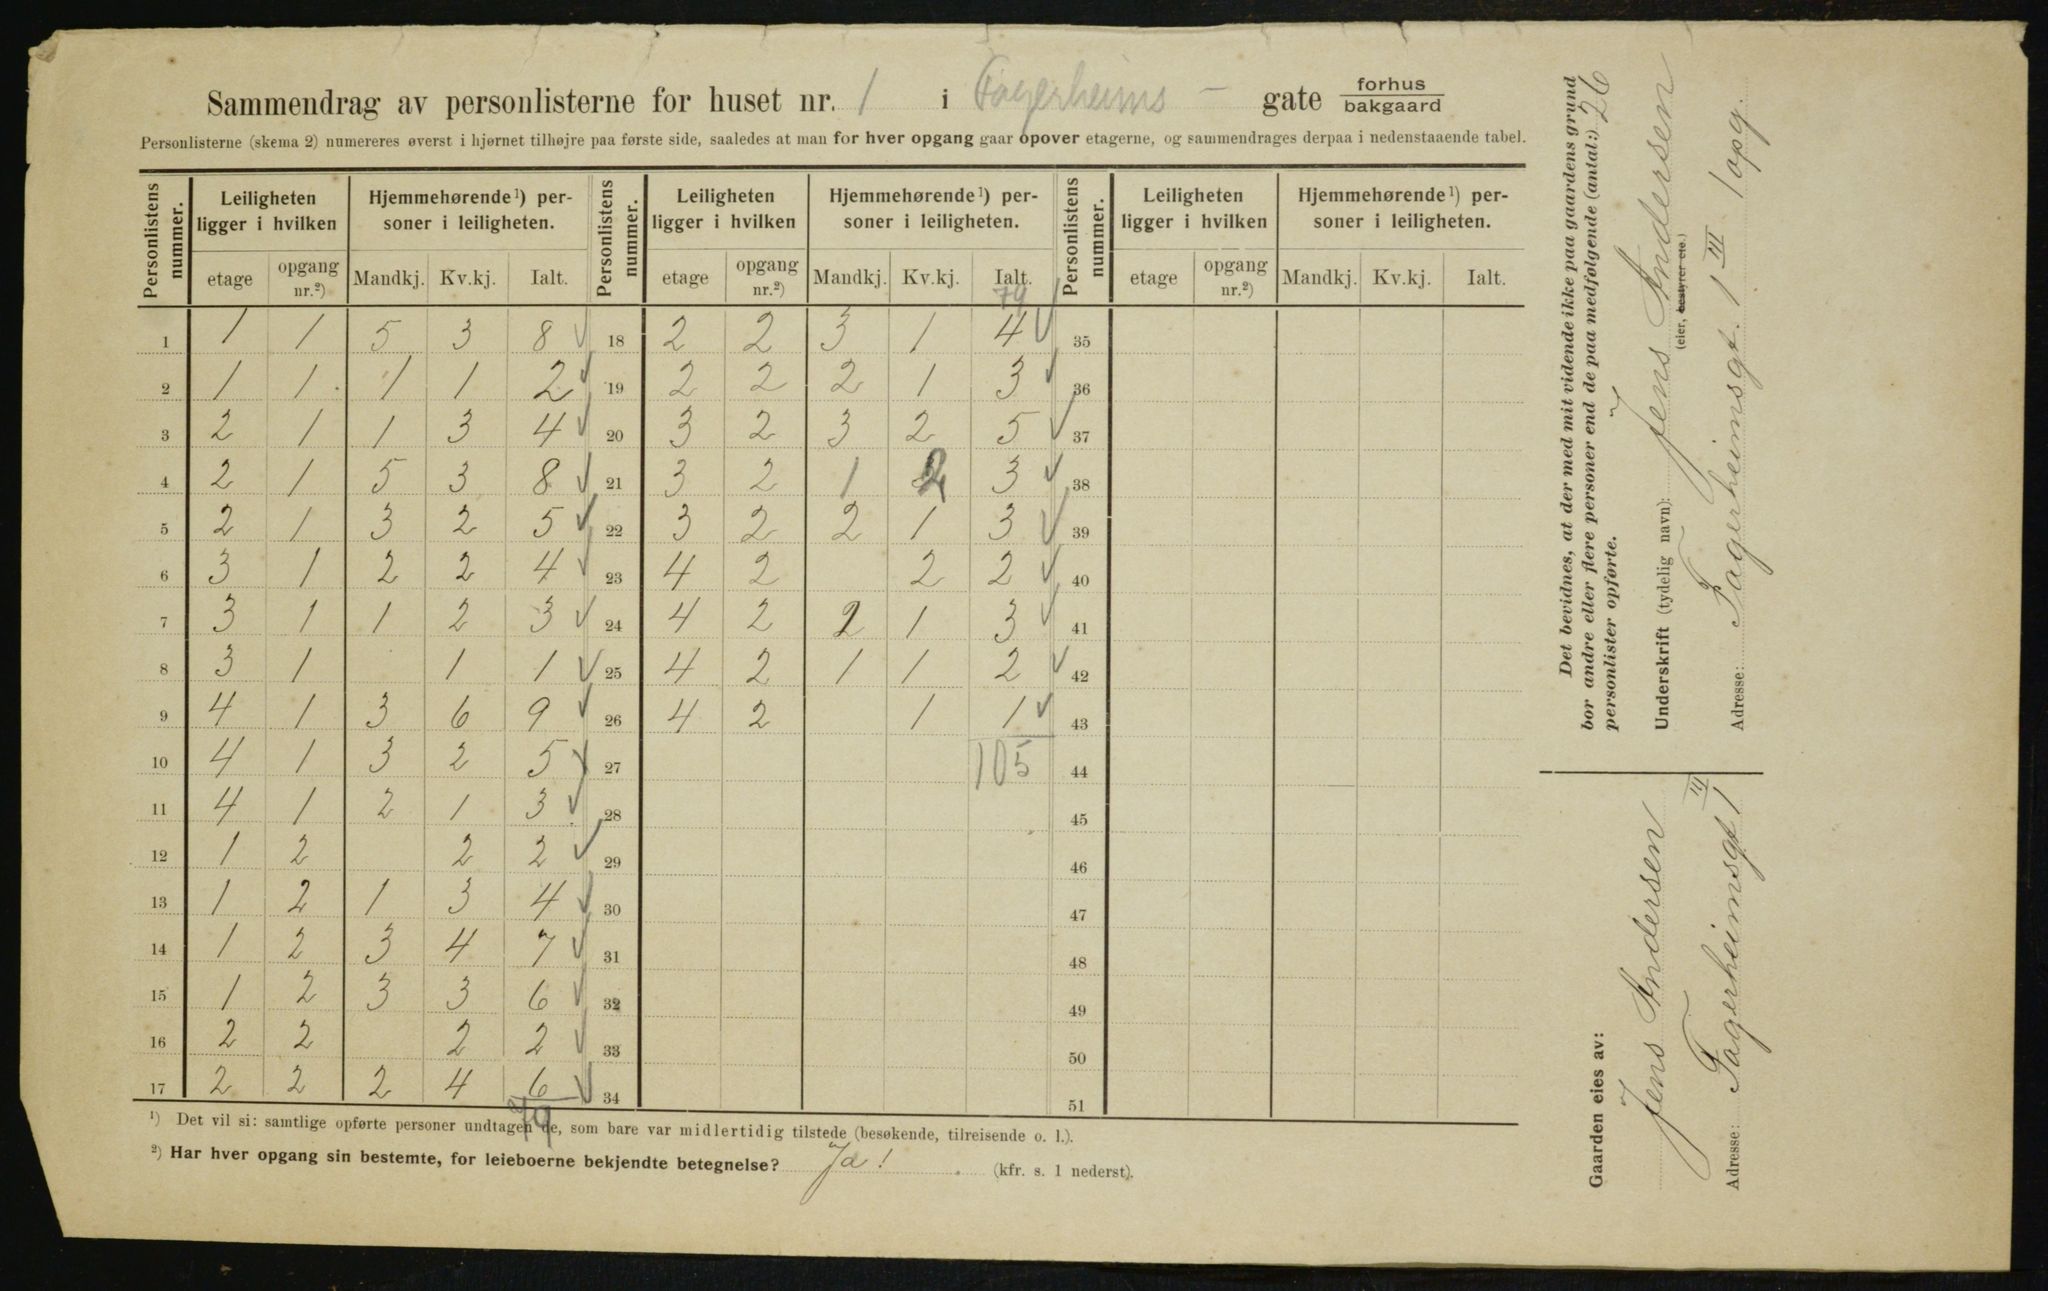 Sammendrag av personlisterne for huset nr. 1 i Fagerheims - gate forhus bakgaard
Personlisterne (skema 2) numereres øverst i hjørnet tilhøjre paa første side, saaledes at man for hver opgang gaar opover etagerne, og sammendrages derpaa i nedenstaaende tabel.
Personlistens nummer. Leiligheten ligger i hvilken Hjemmehørende¹) personer i leiligheten. Personlistens nummer. Leiligheten ligger i hvilken Hjemmehørende¹) personer i leiligheten. Personlistens nummer. Leiligheten ligger i hvilken Hjemmehørende¹) personer i leiligheten.
etage opgang nr.²) Mandkj. Kv.kj. Ialt. etage opgang nr.²) Mandkj. Kv.kj. Ialt. etage opgang nr.²) Mandkj. Kv.kj. Ialt.
79
1 1 1 5 3 8 18 2 2 3 1 4 35
2 1 1 1 1 2 19 2 2 2 1 3 36
3 2 1 1 3 4 20 3 2 3 2 5 37
4 2 1 5 3 8 21 3 2 1 2 3 38
5 2 1 3 2 5 22 3 2 2 1 3 39
6 3 1 2 2 4 23 4 2 2 2 40
7 3 1 1 2 3 24 4 2 2 1 3 41
8 3 1 1 1 25 4 2 1 1 2 42
9 4 1 3 6 9 26 4 2 1 1 43
10 4 1 3 2 5 27 105 44
11 4 1 2 1 3 28 45
12 1 2 2 2 29 46
13 1 2 1 3 4 30 47
14 1 2 3 4 7 31 48
15 1 2 3 3 6 32 49
16 2 2 2 2 33 50
17 2 2 2 4 6 34 51
79
¹) Det vil si: samtlige opførte personer undtagen de, som bare var midlertidig tilstede (besøkende, tilreisende o. l.).
²) Har hver opgang sin bestemte, for leieboerne bekjendte betegnelse? Ja! (kfr. s. 1 nederst).
Det bevidnes, at der med mit vidende ikke paa gaardens grund
bor andre eller flere personer end de paa medfølgende (antal:) 26
personlister opførte.
Underskrift (tydelig navn): Jens Andersen
(eier, bestyrer etc.)
Adresse: Fagerheimsgt. 1 III 1 opg.
Gaarden eies av:
Jens Andersen
Adresse: Fagerheimsgt 1 III